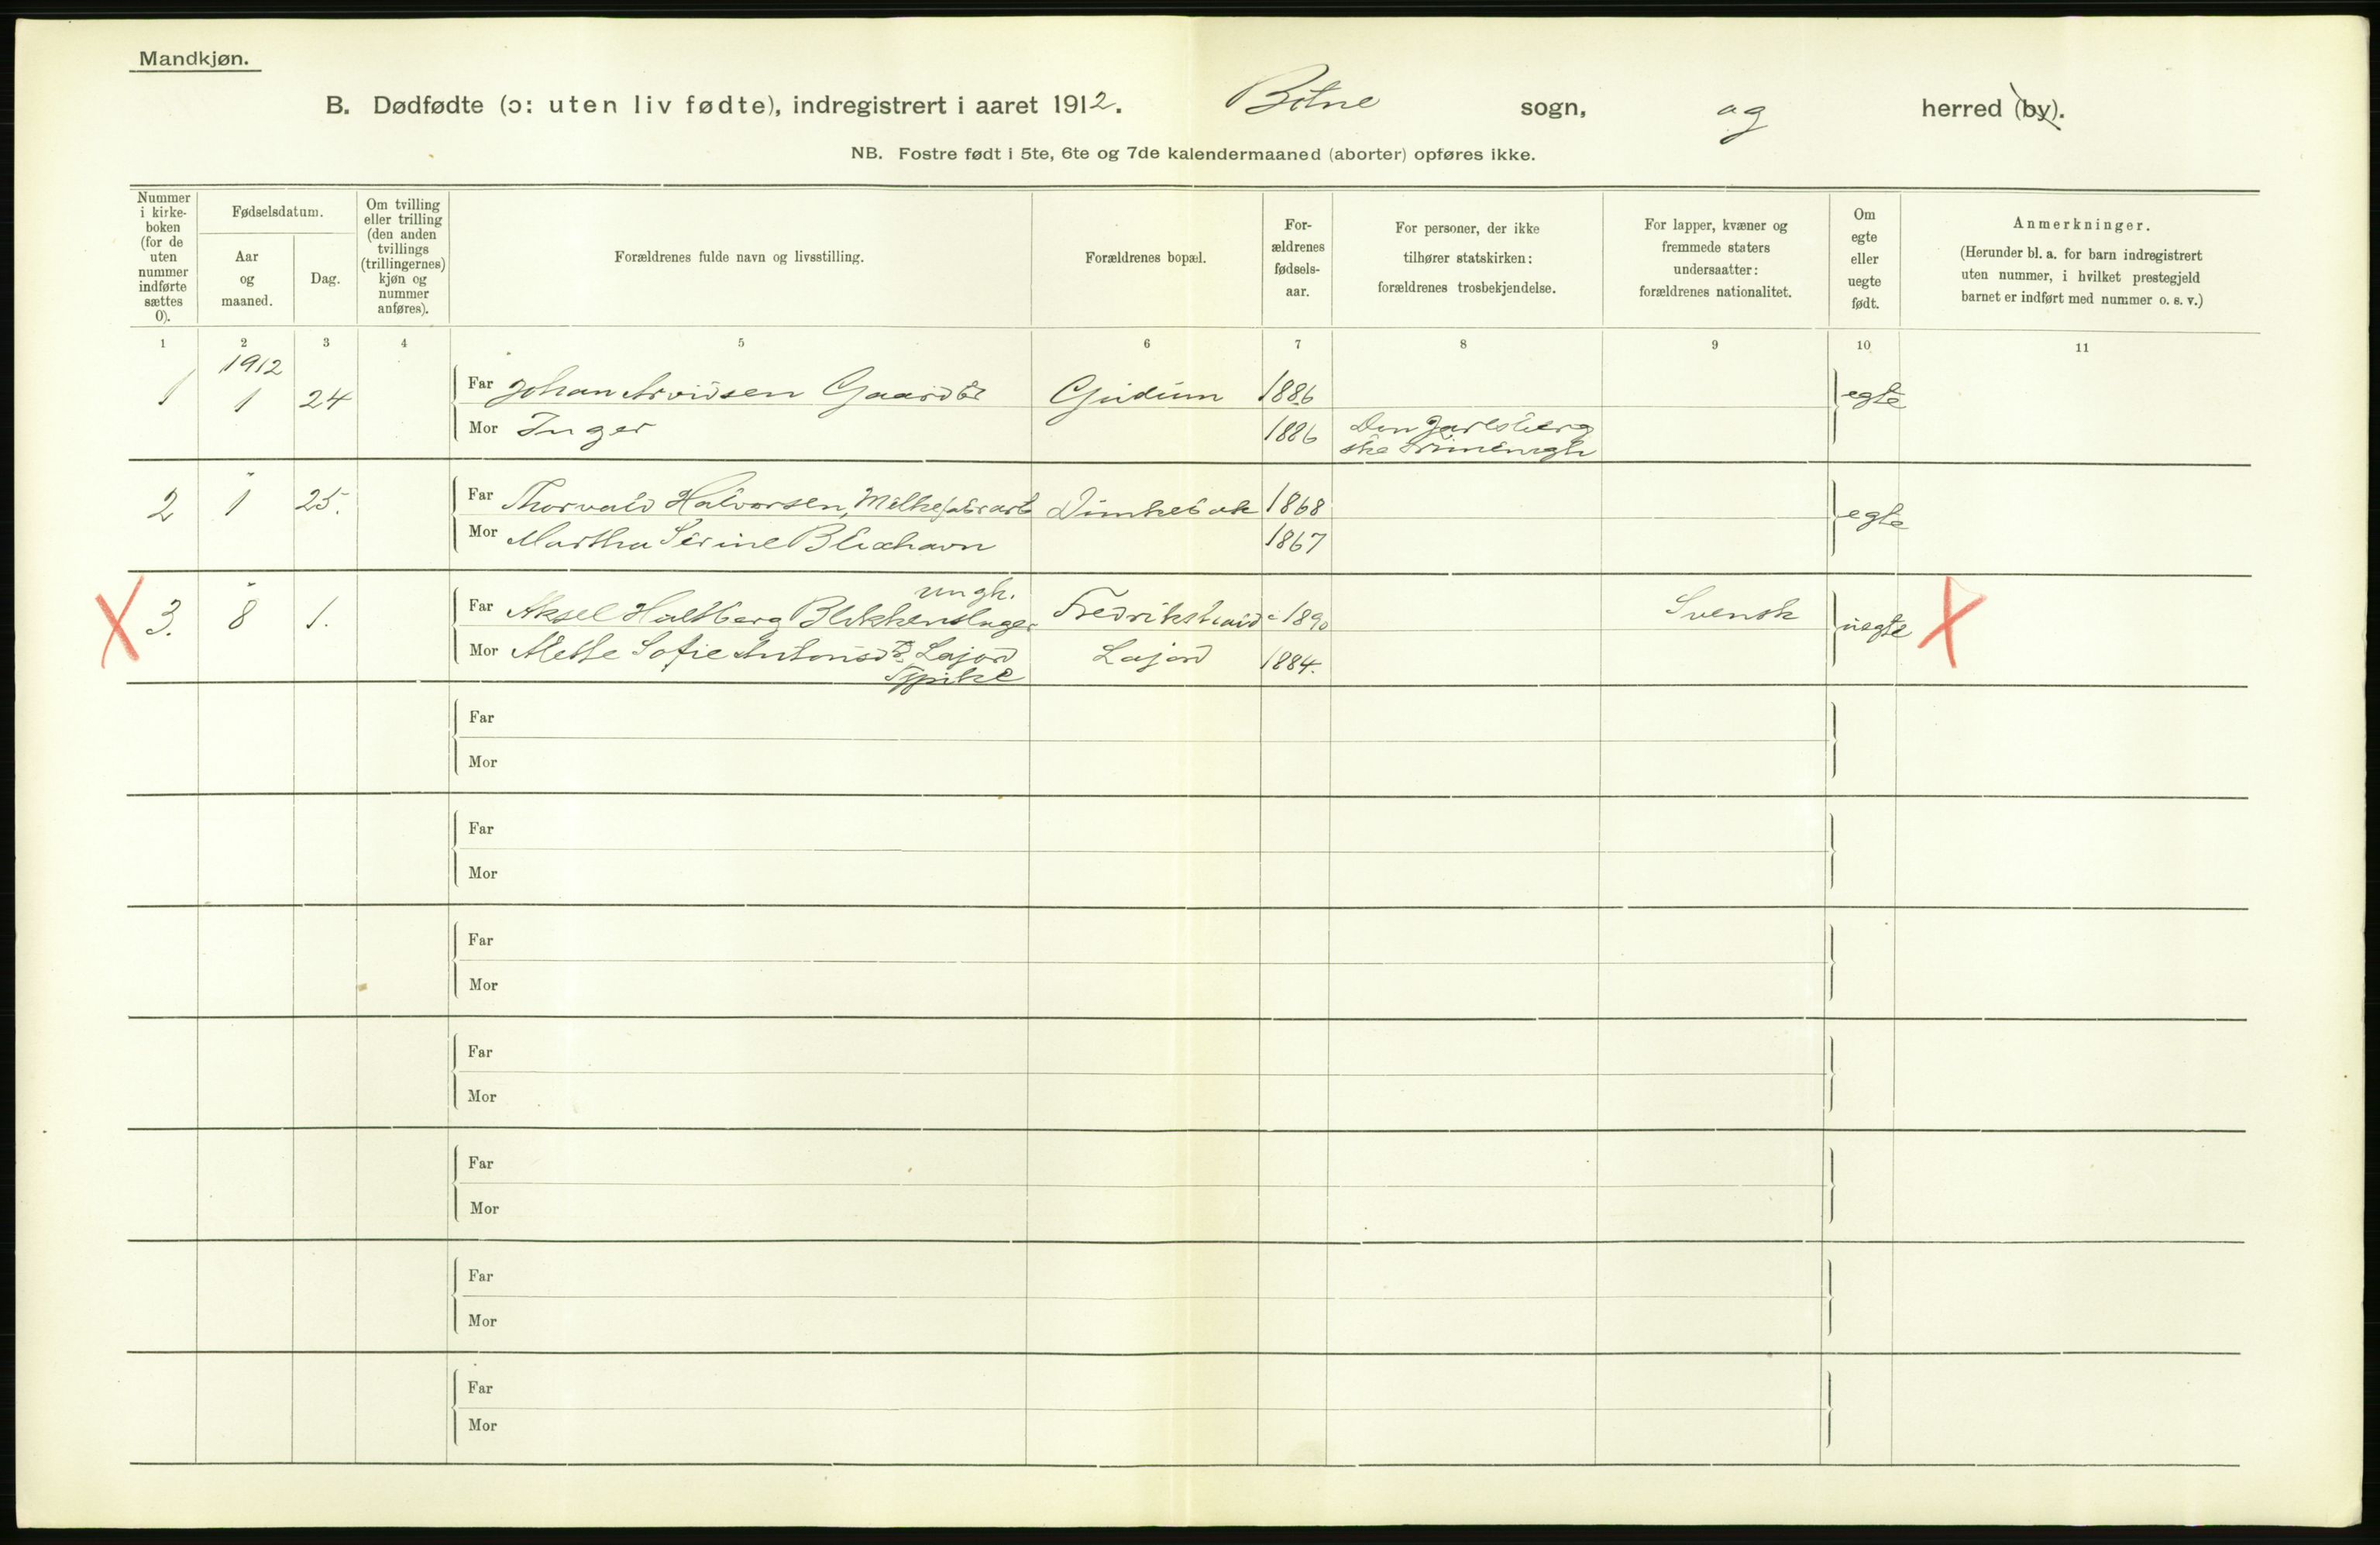 Mandkjøn.
B. Dødfødte (ɔ: uten liv fødte), indregistrert i aaret 1912. Botne sogn, og herred (by).
NB. Fostre født i 5te, 6te og 7de kalendermaaned (aborter) opføres ikke.
Nummer
i kirke-
boken
(for de
uten
nummer
indførte
sættes
0).
Fødselsdatum.
Aar
og
maaned.
Dag.
Om tvilling
eller trilling
(den anden
tvillings
(trillingernes)
kjøn og
nummer
anføres).
Forældrenes fulde navn og livsstilling.
Forældrenes bopæl.
For-
ældrenes
fødsels-
aar.
For personer, der ikke
tilhører statskirken:
forældrenes trosbekjendelse.
For lapper, kvæner og
fremmede staters
undersaatter:
forældrenes nationalitet.
Om
egte
eller
uegte
født.
Anmerkninger.
(Herunder bl. a. for barn indregistrert
uten nummer, i hvilket prestegjeld
barnet er indført med nummer o. s. v.)
1 2 3 4 5 6 7 8 9 10 11
1912
1 1 24 Far Johan Arvidsen Gaardbr Gudum 1886 egte
Mor Inger 1886 Den Jarlsberg
ske frimenigh
2 1 25. Far Thorvald Halvorsen, Melkefabrarb Dunkebak 1868 egte
Mor Martha Serine Blixhavn 1867
ungk.
3. 8 1. Far Aksel Hallberg Blikkenslager Fredrikstad 1890 Svensk uegte
Mor Mette Sofie Antonsdr. Løjord Løjord 1884.
pike
Far
Mor
Far
Mor
Far
Mor
Far
Mor
Far
Mor
Far
Mor
Far
Mor